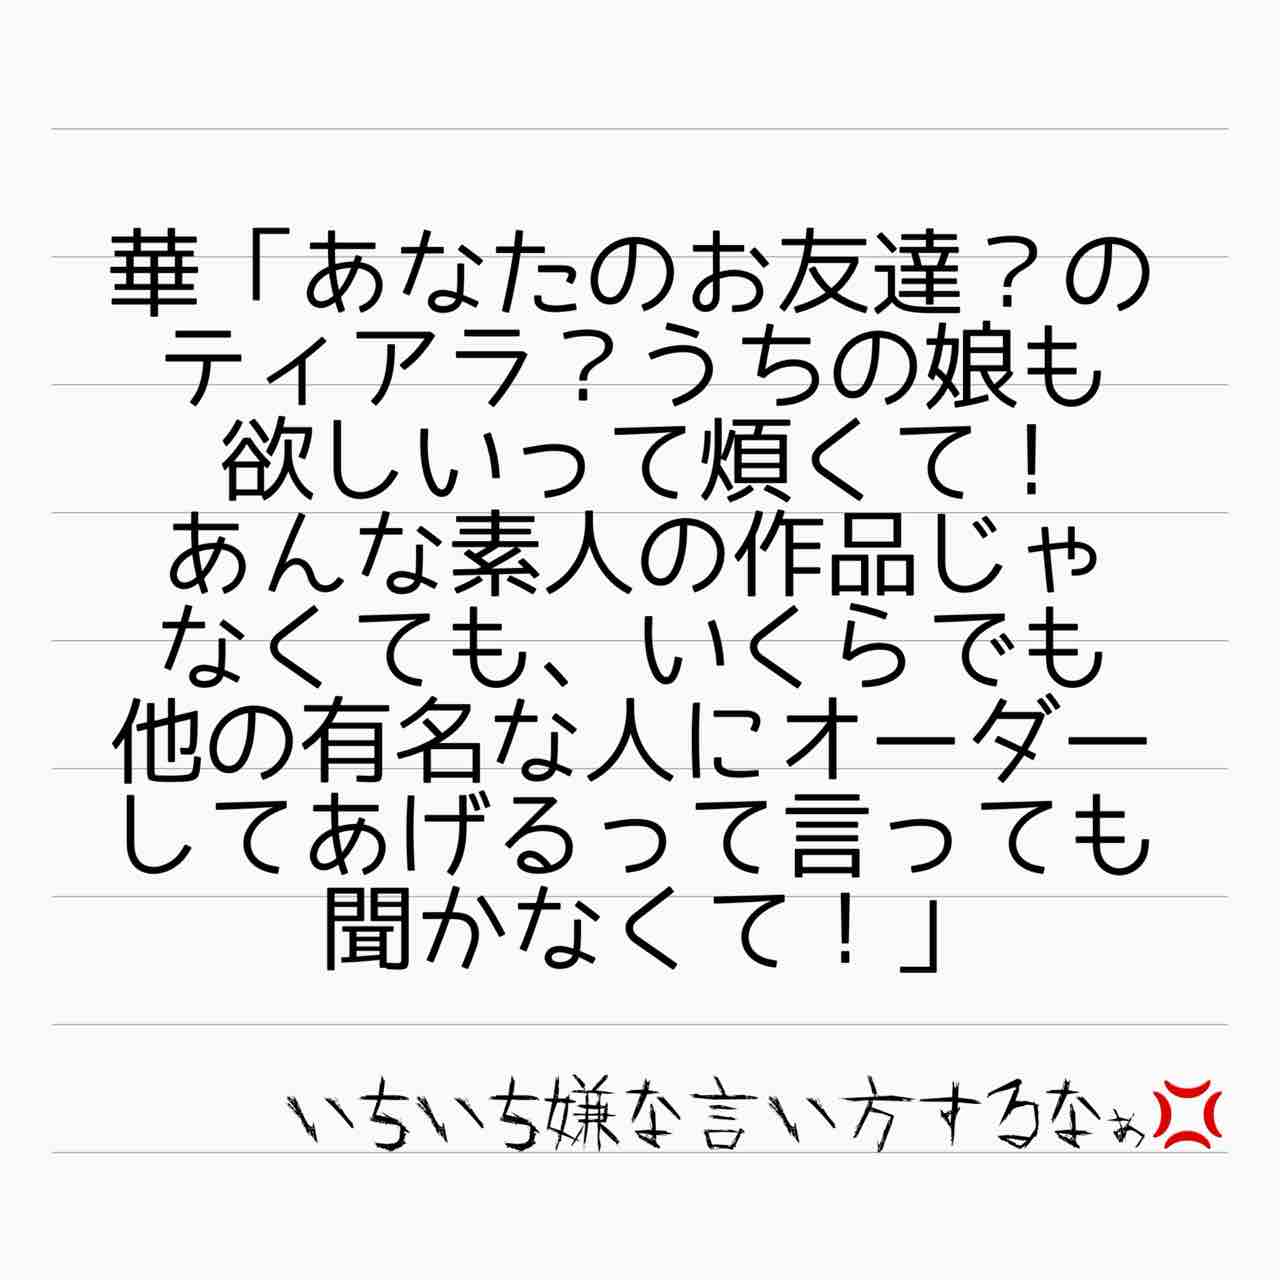 華「あなたのお友達？の
ティアラ？うちの娘も
欲しいって煩くて！
あんな素人の作品じゃ
なくても、いくらでも
他の有名な人にオーダー
してあげるって言っても
聞かなくて！」
いちいち嫌な言い方するなぁ💢